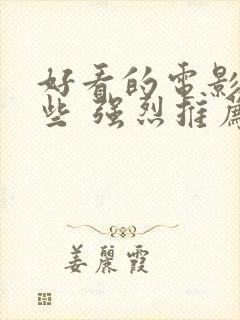 好看的電影
些 強烈推薦
姜麗霞